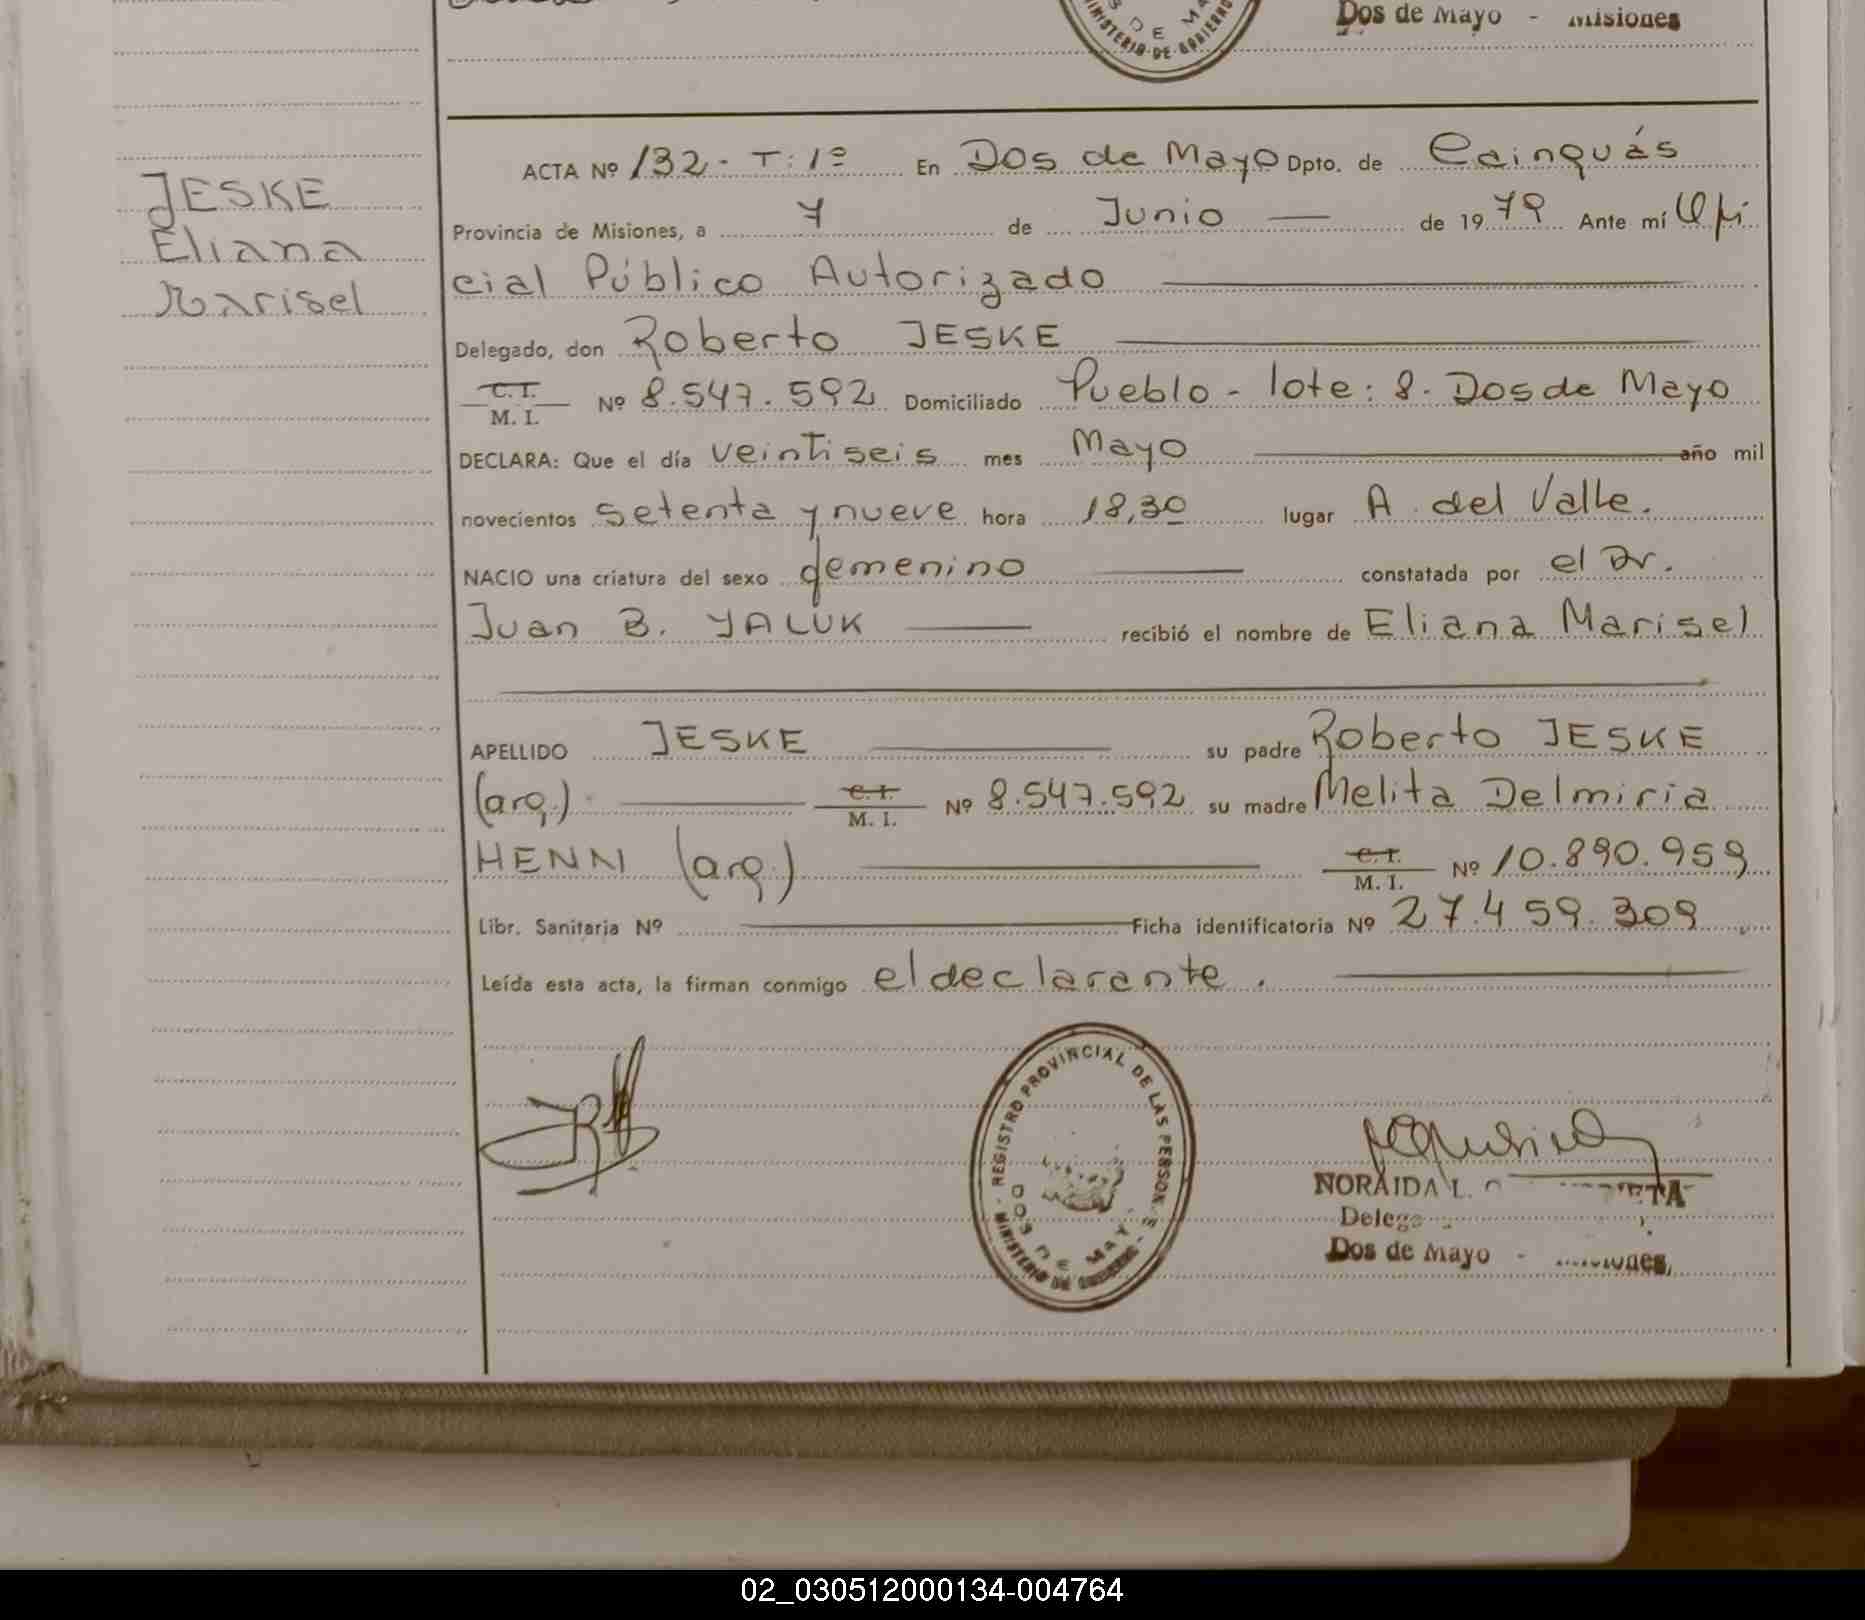 Dos de Mayo - Misiones
MINISTERIO DE GOBIERNO
JESKE
Eliana
Marisel
ACTA Nº 132 - T: 1º En Dos de Mayo Dpto. de Cainguás
Provincia de Misiones, a 7 de Junio — de 1979 Ante mí Ofi
cial Público Autorizado
Delegado, don Roberto JESKE
C. I.
M. I. Nº 8.547.592 Domiciliado Pueblo - lote: 8. Dos de Mayo
DECLARA: Que el día veintiseis mes Mayo año mil
novecientos setenta y nueve hora 18,30 lugar A. del Valle.
NACIO una criatura del sexo femenino constatada por el Dr.
Juan B. YALUK recibió el nombre de Eliana Marisel
APELLIDO JESKE su padre Roberto JESKE
(arg.) C. I. M. I. Nº 8.547.592 su madre Melita Delmiria
HENN (arg.) C. I. M. I. Nº 10.890.959
Libr. Sanitaria Nº Ficha identificatoria Nº 27.459.309
Leída esta acta, la firman conmigo el declarante.
REGISTRO PROVINCIAL DE LAS PERSONAS
DOS DE MAYO
MINISTERIO DE GOBIERNO
NORAIDA L.
Dos de Mayo - Misiones
02_030512000134-004764